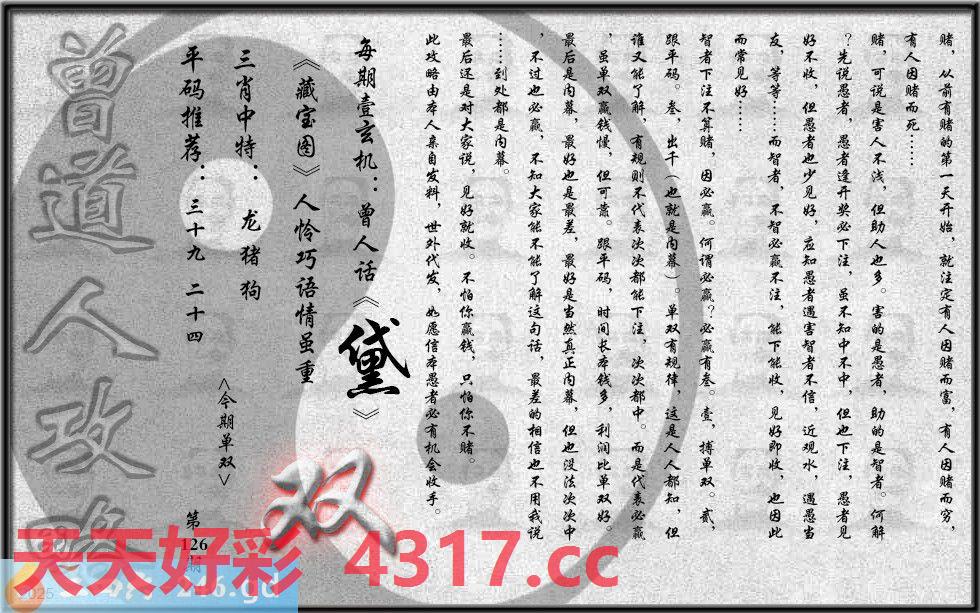 赌，从前有赌的第一天开始，就注定有人因赌而富，有人因赌而穷，
有人因赌而死……
赌，可说是害人不浅，但助人也多。害的是愚者，助的是智者。何解
？先说愚者，愚者逢开奖必下注，虽不知中不中，但也下注，愚者见
好不收，但愚者也少见好，应知愚者遇害智者不信，近观水，遇愚当
友，等等……而智者，不智必赢不注，能下能收，见好即收，也因此
而常见好……
智者下注不算赌，因必赢。何谓必赢？必赢有叁。壹，搏单双。贰，
跟平码。叁，出千（也就是内幕）。单双有规律，这是人人都知，但
谁又能了解，有规则不代表次次都能下注，次次都中。而是代表必赢
，虽单双赢钱慢，但可靠。跟平码，时间长本钱多，利润比单双好。
最后是内幕，最好也是最差，最好是当然真正内幕，但也没法次次中
，不过也必赢，不知大家能不能了解这句话，最差的相信也不用我说
……到处都是内幕。
最后还是对大家说，见好就收。不怕你赢钱，只怕你不赌。
此攻略由本人亲自发料，世外代发，如愿信本愚者必有机会收手。
每期壹玄机：曾人话《黛》
《藏宝图》人怜巧语情虽重
三肖中特：龙猪狗
平码推荐：三十九 二十四
<今期单双>
双
第
126
期
曾道人攻略
天天好彩 4317.cc
2025